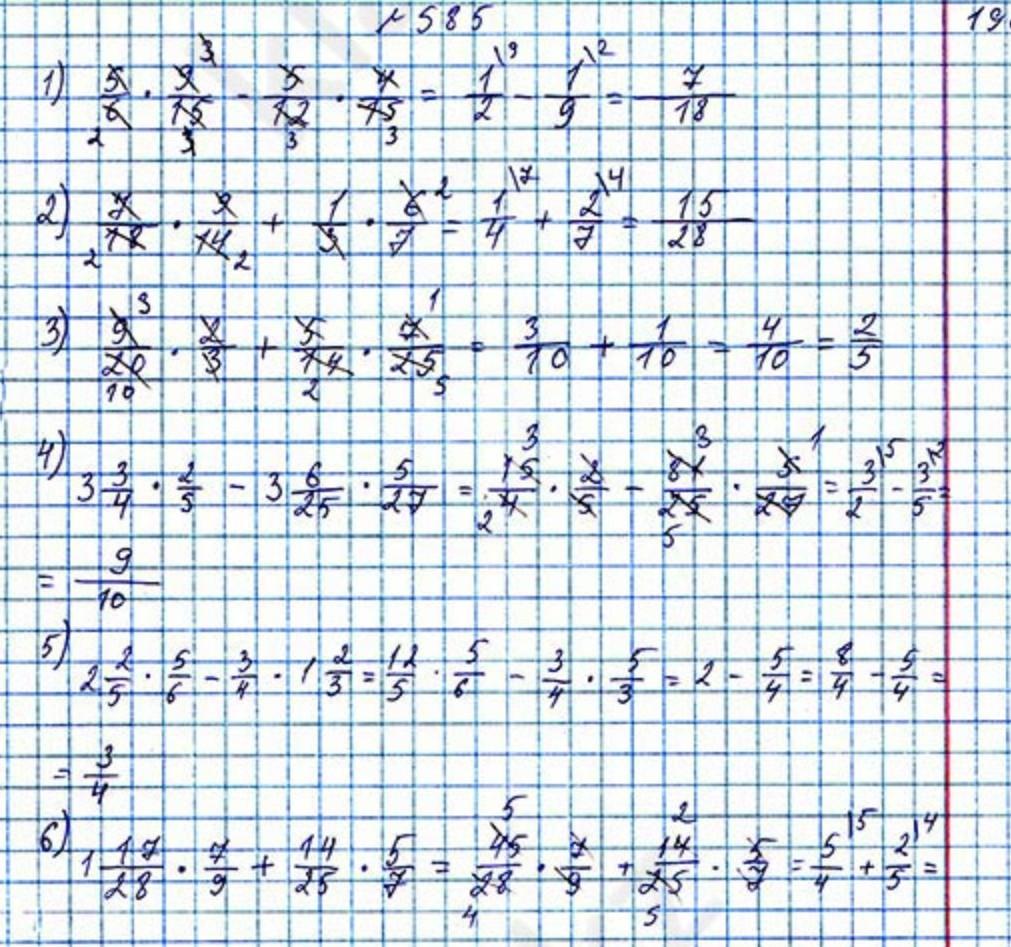 №585 19
1) 5/6 · 9/15 - 5/12 · 4/15 = 1/2 - 1/9 = 7/18
2) 7/18 · 9/14 + 1/3 · 6/7 = 1/4 + 2/7 = 15/28
3) 9/20 · 2/3 + 5/14 · 7/25 = 3/10 + 1/10 = 4/10 = 2/5
4) 3 3/4 · 2/5 - 3 6/25 · 5/27 = 15/4 · 2/5 - 81/25 · 5/27 = 3/2 - 3/5 =
= 9/10
5) 2 2/5 · 5/6 - 3/4 · 1 2/3 = 12/5 · 5/6 - 3/4 · 5/3 = 2 - 5/4 = 8/4 - 5/4 =
= 3/4
6) 1 17/28 · 7/9 + 14/25 · 5/7 = 45/28 · 7/9 + 14/25 · 5/7 = 5/4 + 2/5 =